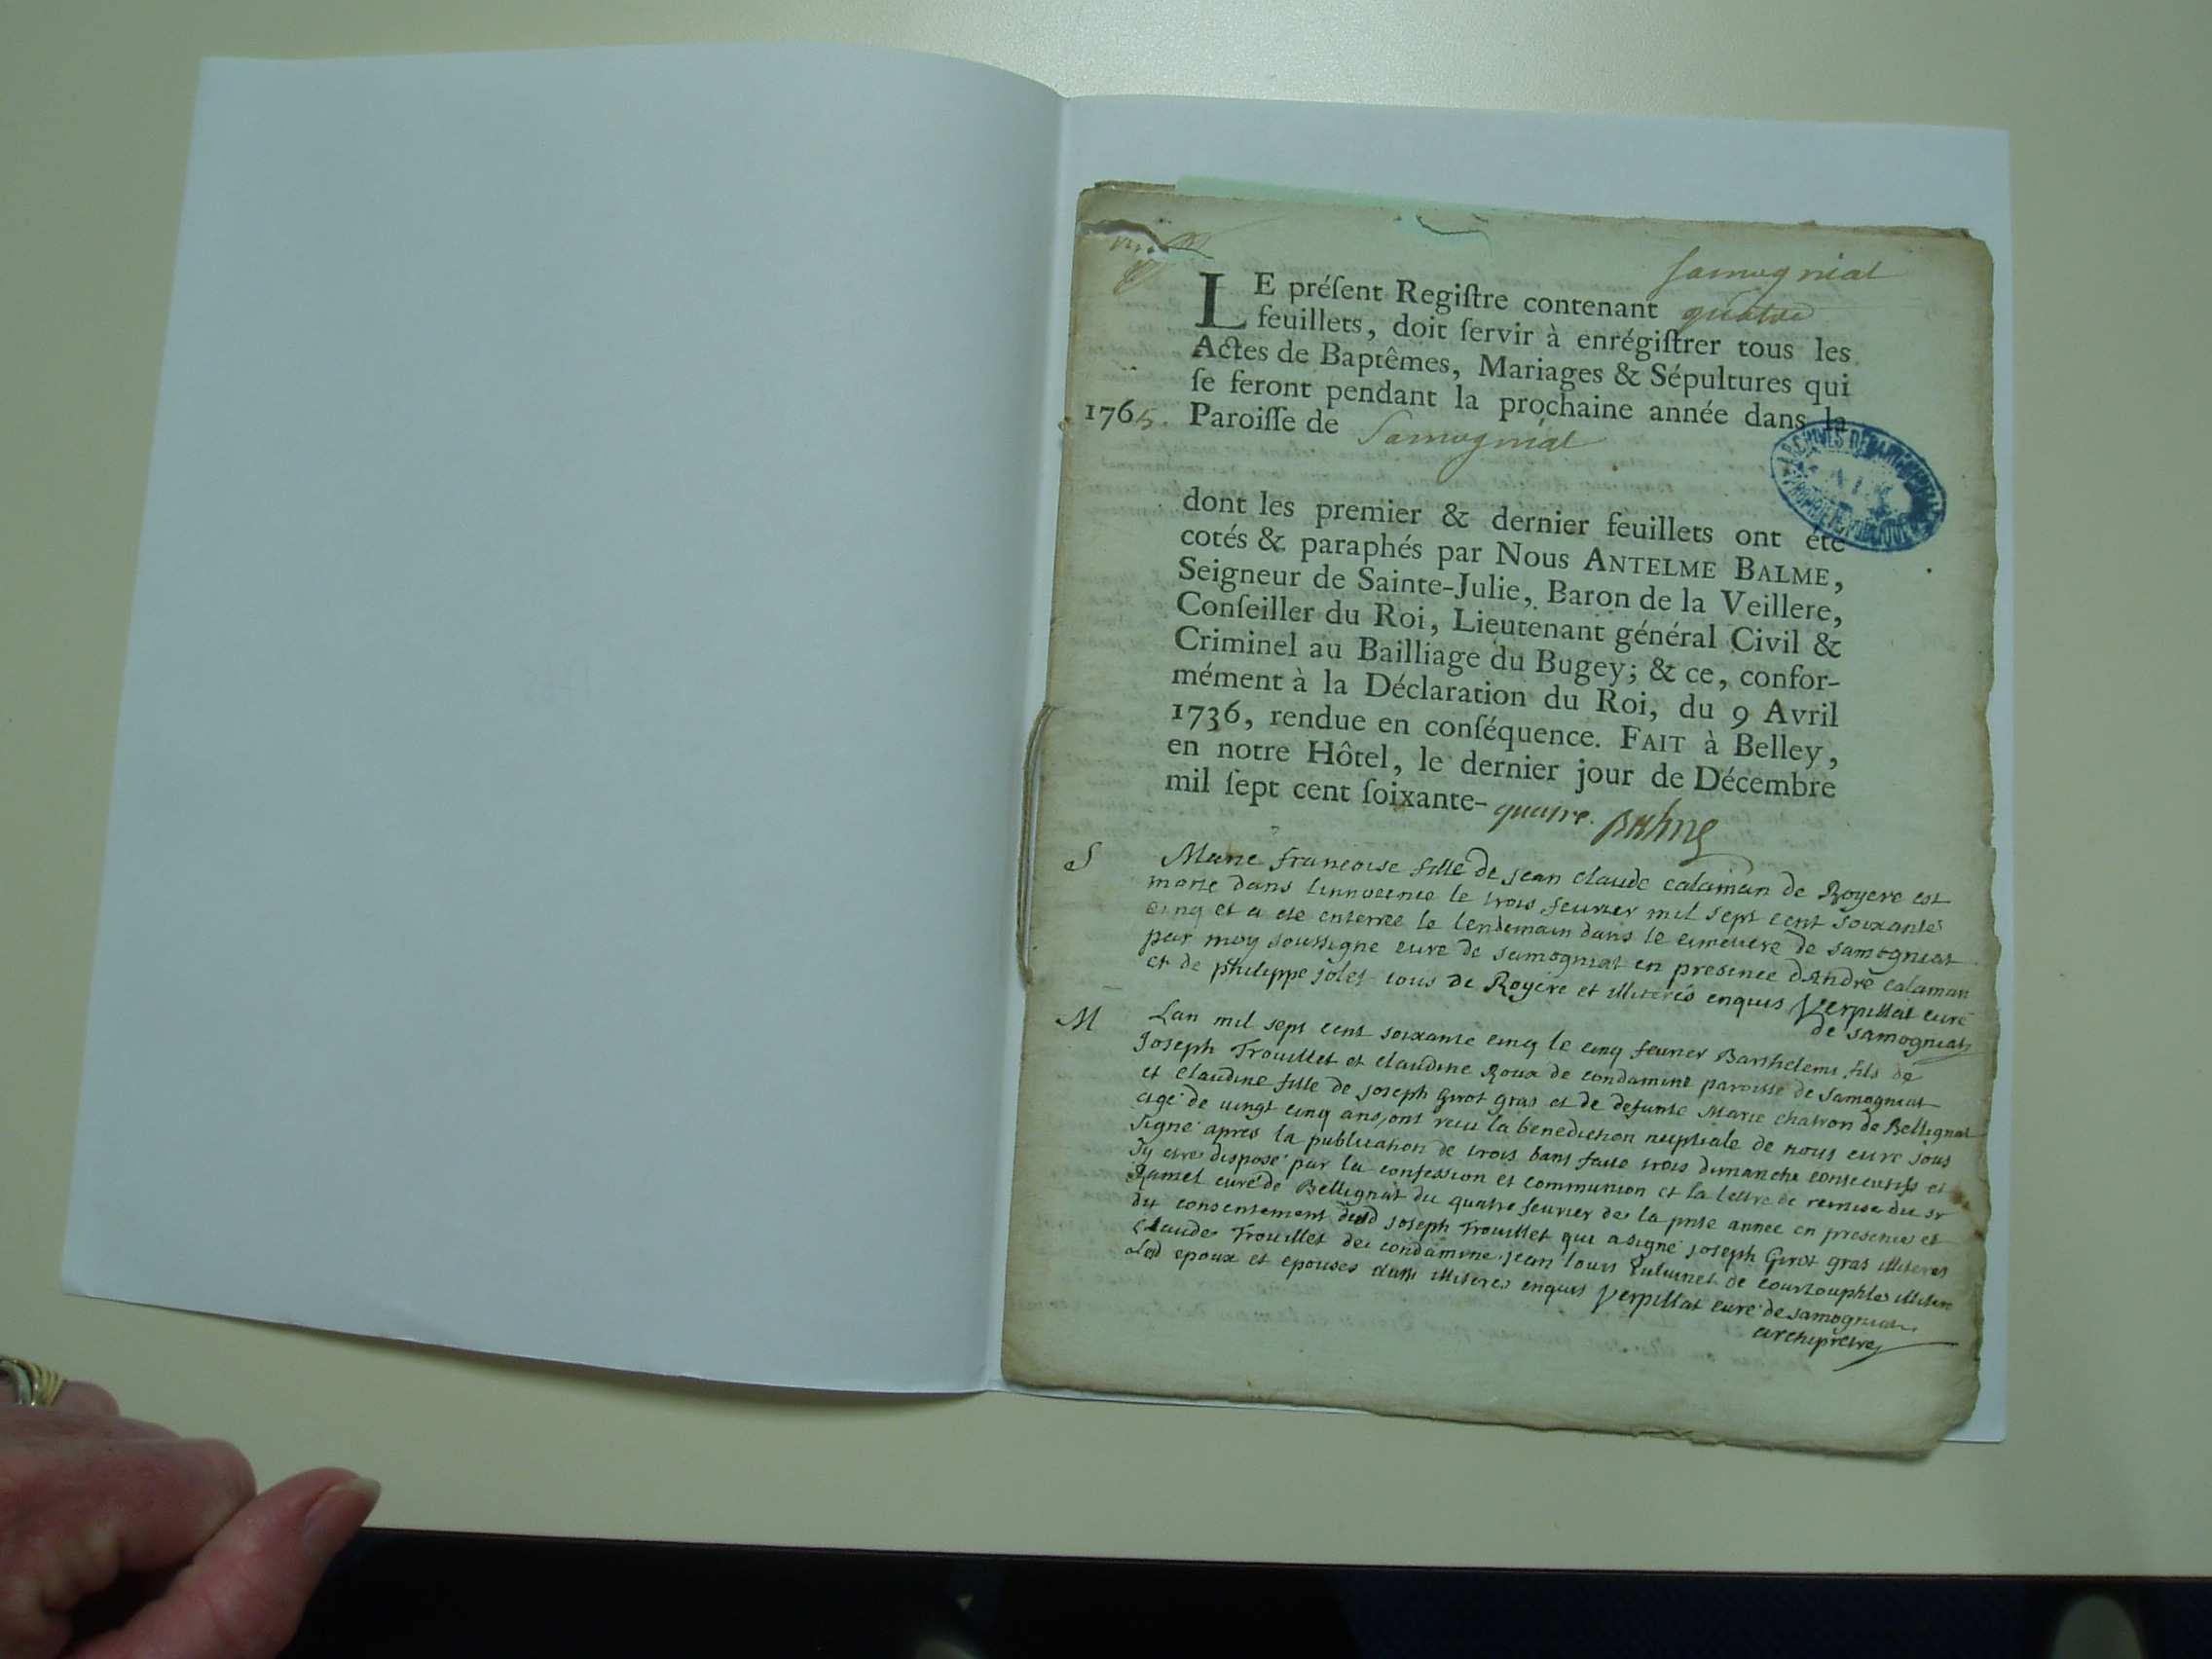 Samogniat
LE préſent Regiſtre contenant quatre
feuillets, doit ſervir à enrégiſtrer tous les
Actes de Baptêmes, Mariages & Sépultures qui
ſe feront pendant la prochaine année dans la
1765. Paroiſſe de Samogniat
ARCHIVES DÉPARTEMENTALES
AIN
PROPRIÉTÉ PUBLIQUE
dont les premier & dernier feuillets ont été
cotés & paraphés par Nous ANTELME BALME,
Seigneur de Sainte-Julie, Baron de la Veillere,
Conſeiller du Roi, Lieutenant général Civil &
Criminel au Bailliage du Bugey; & ce, confor-
mément à la Déclaration du Roi, du 9 Avril
1736, rendue en conſéquence. FAIT à Belley,
en notre Hôtel, le dernier jour de Décembre
mil ſept cent ſoixante-quatre. Balme
S Marie francoise fille de jean claude calaman de Royere est
morte dans linnocence le trois feurier mil sept cent soixante
cinq et a ete enterree le lendemain dans le cimetiere de samogniat
par moy soussigne cure de samogniat en presence dAndré calaman
et de philippe jolet tous de Royere et illiterés enquis Verpillat curé
de samogniat
M Lan mil sept cent soixante cinq le cinq feurier Barthelemi fils de
Joseph Trouillet et claudine Roux de condamine paroisse de samogniat
et claudine fille de joseph Girot gras et de defunte Marie chatron de Bellignat
agé de vingt cinq ans, ont recu la benediction nuptiale de nous curé sous
signé apres la publication de trois bans faite trois dimanche consecutifs et
sy etre disposé par la confession et communion et la lettre de remise du sr
Ramel curé de Bellignat du quatre feurier de la pnte année en presence et
du consentement dud joseph Trouillet qui a signé joseph Girot gras illiteres
claude Trouillet de condamine jean louis de courtouphle illiter
Led epoux et epouses illiteres enquis Verpillat curé de samogniat
archipretre